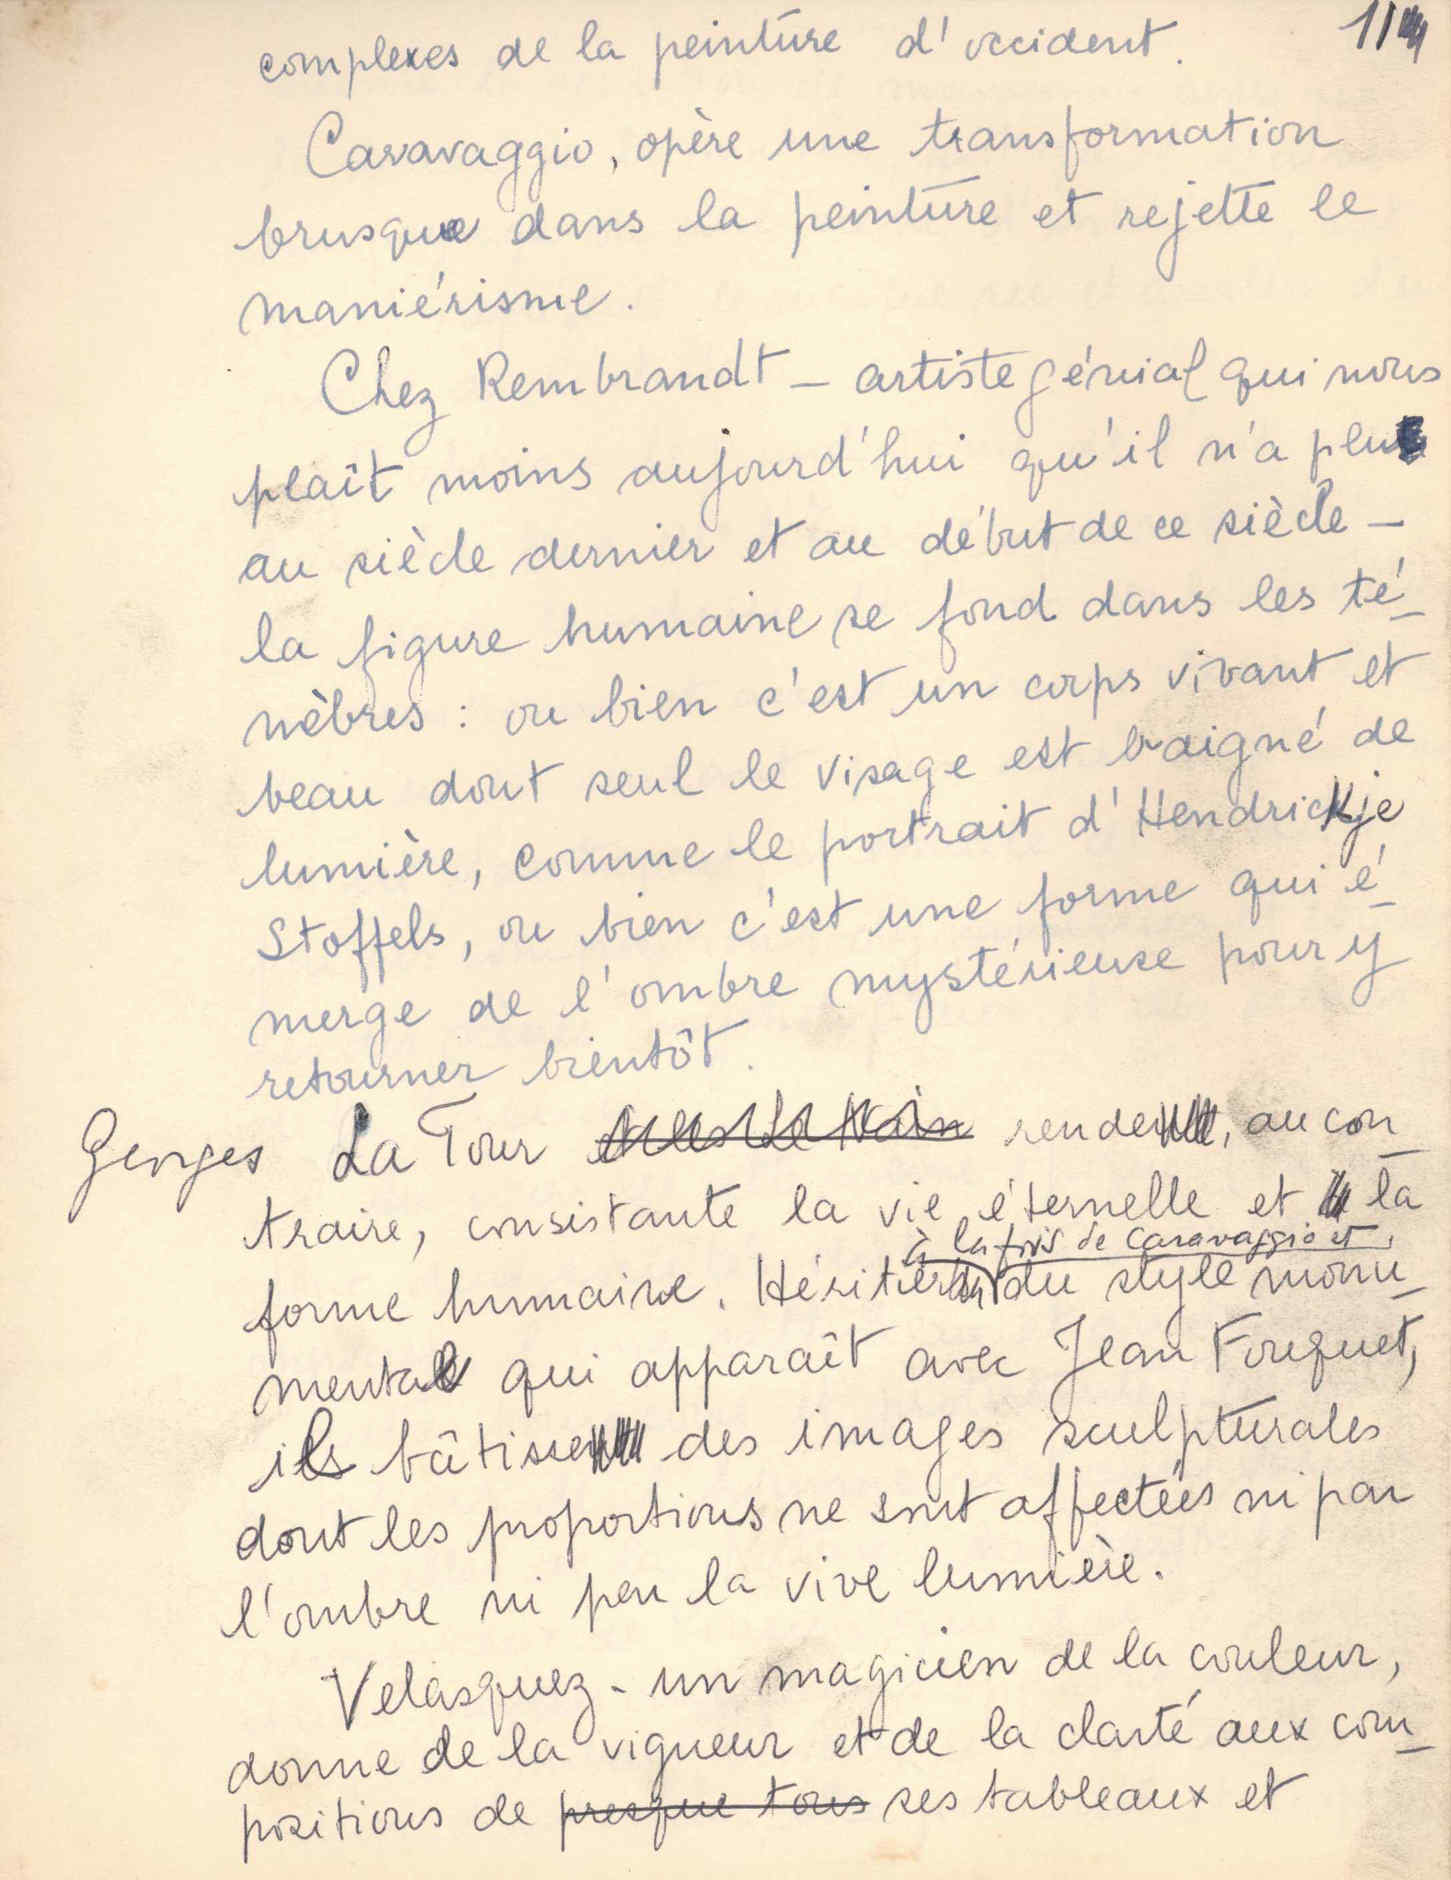 11
complexes de la peinture d'occident.
Caravaggio, opère une transformation
brusque dans la peinture et rejette le
maniérisme.
Chez Rembrandt - artiste génial qui nous
plaît moins aujourd'hui qu'il n'a plu
au siècle dernier et au début de ce siècle -
la figure humaine se fond dans les té-
nèbres : ou bien c'est un corps vivant et
beau dont seul le visage est baigné de
lumière, comme le portrait d'Hendrickje
Stoffels, ou bien c'est une forme qui é-
merge de l'ombre mystérieuse pour y
retourner bientôt.
Georges La Tour rend, au con-
traire, consistante la vie éternelle et la
à la fois de Caravaggio et
forme humaine. Héritier du style monu-
mental qui apparaît avec Jean Fouquet,
il bâtisse des images sculpturales
dont les proportions ne sont affectées ni par
l'ombre ni par la vive lumière.
Velasquez - un magicien de la couleur,
donne de la vigueur et de la clarté aux com-
positions de presque tous ses tableaux et